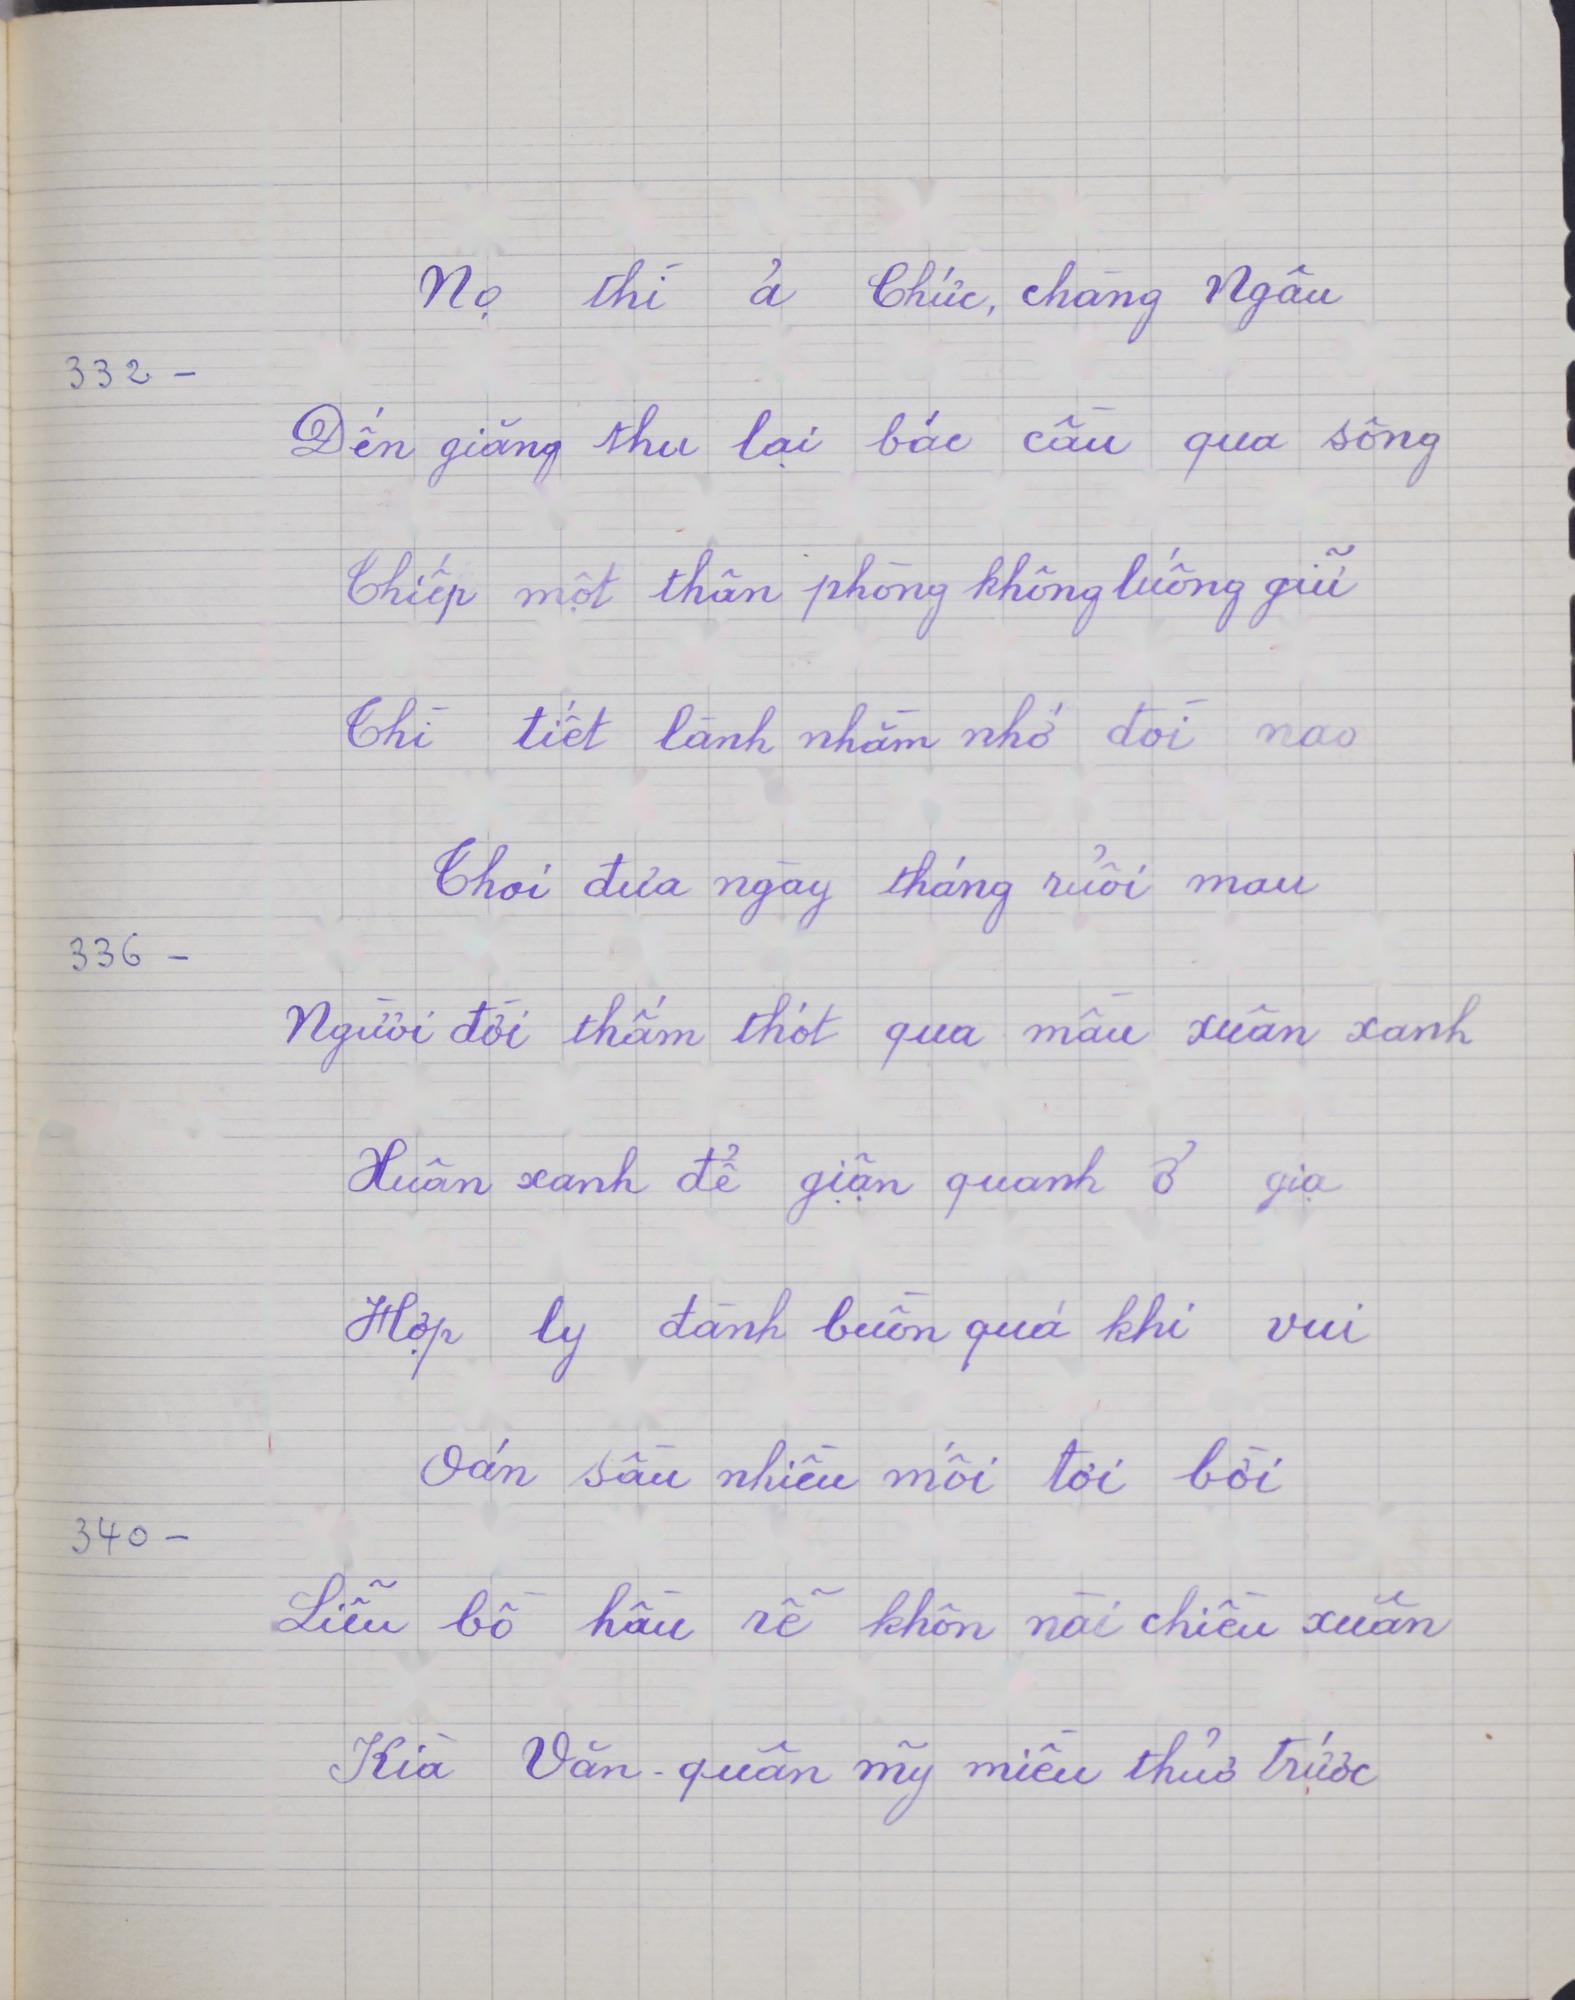 Nọ thì ả Chức, chàng Ngâu
332 -
Đến giăng thu lại bác cầu qua sông
Thiếp một thân phòng không luống giữ
Thì tiết lành nhầm nhỡ đòi nao
Thoi đưa ngày tháng ruổi mau
336 -
Người đời thấm thót qua mầu xuân xanh
Xuân xanh để giận quanh ở giạ
Hợp ly đành buồn quá khi vui
Oán sầu nhiều mối tơi bời
340 -
Liễu bồ hầu rễ khôn nài chiều xuân
Kià Văn-quân mỹ miều thuở trước